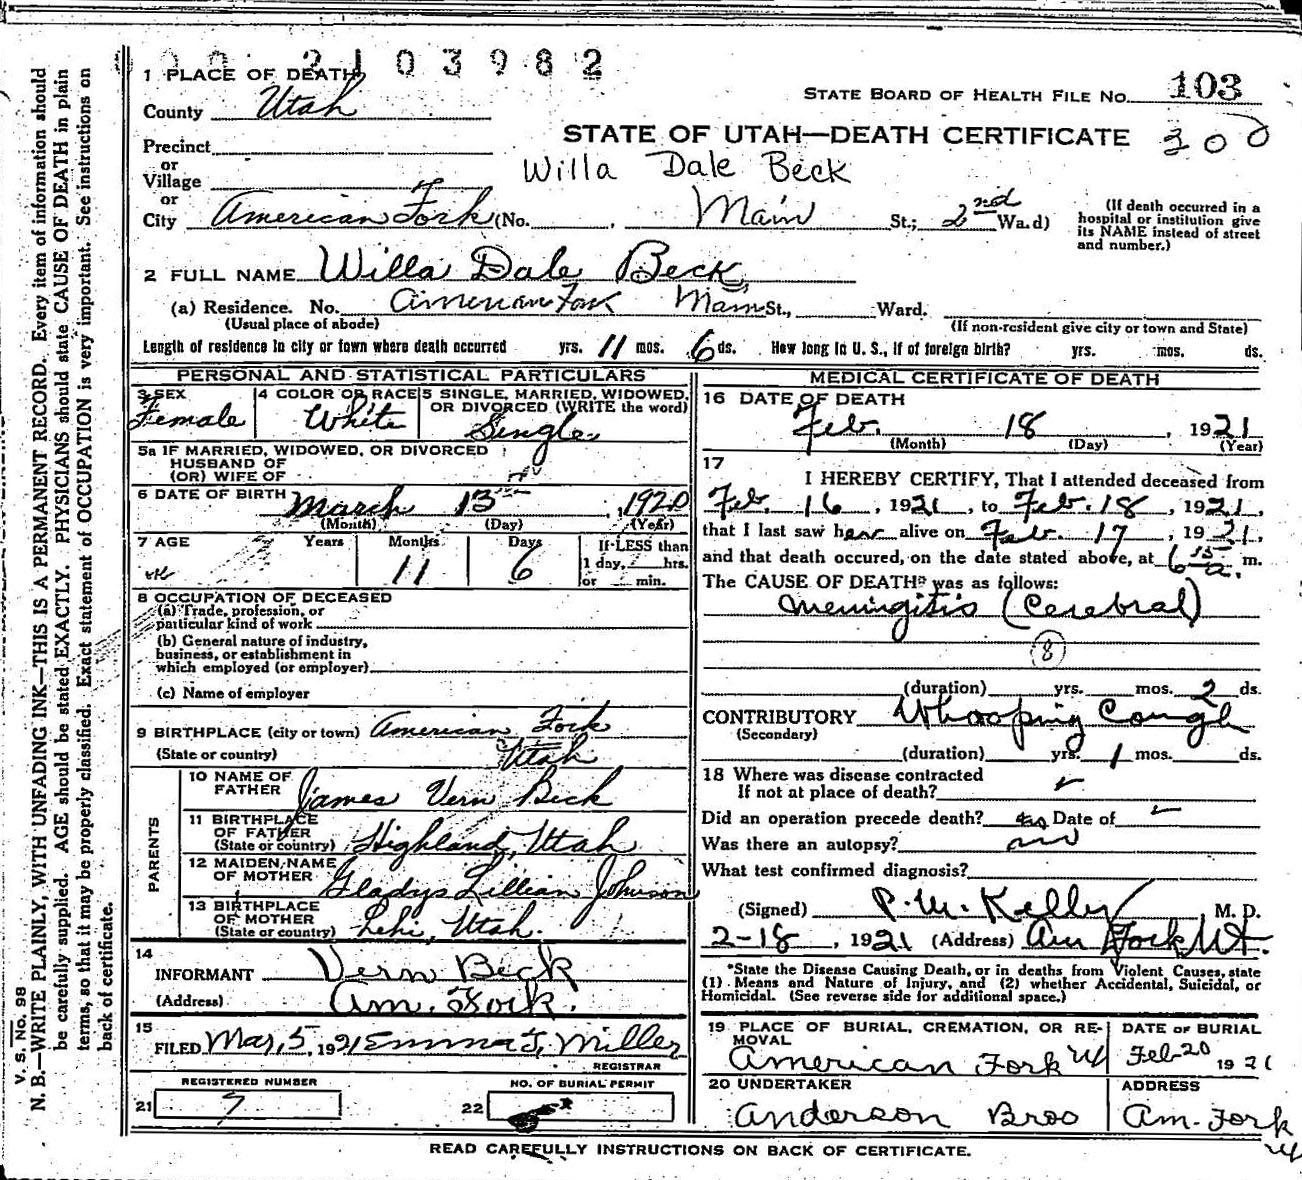 2103982
1 PLACE OF DEATH
County Utah
STATE BOARD OF HEALTH FILE No. 103
STATE OF UTAH—DEATH CERTIFICATE 300
Precinct
or
Village
Willa Dale Beck
or
City American Fork (No. , Main St.; 2nd Wa.d)
(If death occurred in a
hospital or institution give
its NAME instead of street
and number.)
2 FULL NAME Willa Dale Beck
(a) Residence. No. American Fork Main St., Ward.
(Usual place of abode) (If non-resident give city or town and State)
Length of residence in city or town where death occurred yrs. 11 mos. 6 ds. How long in U. S., if of foreign birth? yrs. mos. ds.
PERSONAL AND STATISTICAL PARTICULARS
3 SEX
Female
4 COLOR OR RACE
White
5 SINGLE, MARRIED, WIDOWED,
OR DIVORCED (WRITE the word)
Single
5a IF MARRIED, WIDOWED, OR DIVORCED
HUSBAND OF
(OR) WIFE OF
6 DATE OF BIRTH March 13, 1920
(Month) (Day) (Year)
7 AGE Years Months Days If LESS than
11 6 1 day, hrs.
or min.
8 OCCUPATION OF DECEASED
(a) Trade, profession, or
particular kind of work
(b) General nature of industry,
business, or establishment in
which employed (or employer)
(c) Name of employer
9 BIRTHPLACE (city or town) American Fork
(State or country) Utah
PARENTS
10 NAME OF
FATHER James Vern Beck
11 BIRTHPLACE
OF FATHER
(State or country) Highland, Utah
12 MAIDEN NAME
OF MOTHER Gladys Lillian Johnson
13 BIRTHPLACE
OF MOTHER
(State or country) Lehi, Utah.
14
INFORMANT Vern Beck
(Address) Am. Fork.
15
FILED Mar, 5, 1921 Emma J. Miller
REGISTRAR
REGISTERED NUMBER
21 7
NO. OF BURIAL PERMIT
22
MEDICAL CERTIFICATE OF DEATH
16 DATE OF DEATH
Feb. 18, 1921
(Month) (Day) (Year)
17
I HEREBY CERTIFY, That I attended deceased from
Feb. 16, 1921, to Feb. 18, 1921,
that I last saw her alive on Feb. 17, 1921,
and that death occured, on the date stated above, at 6 15 a. m.
The CAUSE OF DEATH* was as follows:
Meningitis (Cerebral)
8
(duration) yrs. mos. 2 ds.
CONTRIBUTORY Whooping Cough
(Secondary)
(duration) yrs. 1 mos. ds.
18 Where was disease contracted
If not at place of death?
Did an operation precede death? no Date of
Was there an autopsy? no
What test confirmed diagnosis?
(Signed) P. M. Kelly M. D.
2-18, 1921 (Address) Am Fork Ut.
*State the Disease Causing Death, or in deaths from Violent Causes, state
(1) Means and Nature of Injury, and (2) whether Accidental, Suicidal, or
Homicidal. (See reverse side for additional space.)
19 PLACE OF BURIAL, CREMATION, OR RE-
MOVAL
American Fork Ut
DATE OF BURIAL
Feb-20 1921
20 UNDERTAKER
Anderson Bros
ADDRESS
Am. Fork
Ut
READ CAREFULLY INSTRUCTIONS ON BACK OF CERTIFICATE.
V. S. No. 98
N. B.—WRITE PLAINLY, WITH UNFADING INK—THIS IS A PERMANENT RECORD. Every item of information should
be carefully supplied. AGE should be stated EXACTLY. PHYSICIANS should state CAUSE OF DEATH in plain
terms, so that it may be properly classified. Exact statement of OCCUPATION is very important. See instructions on
back of certificate.